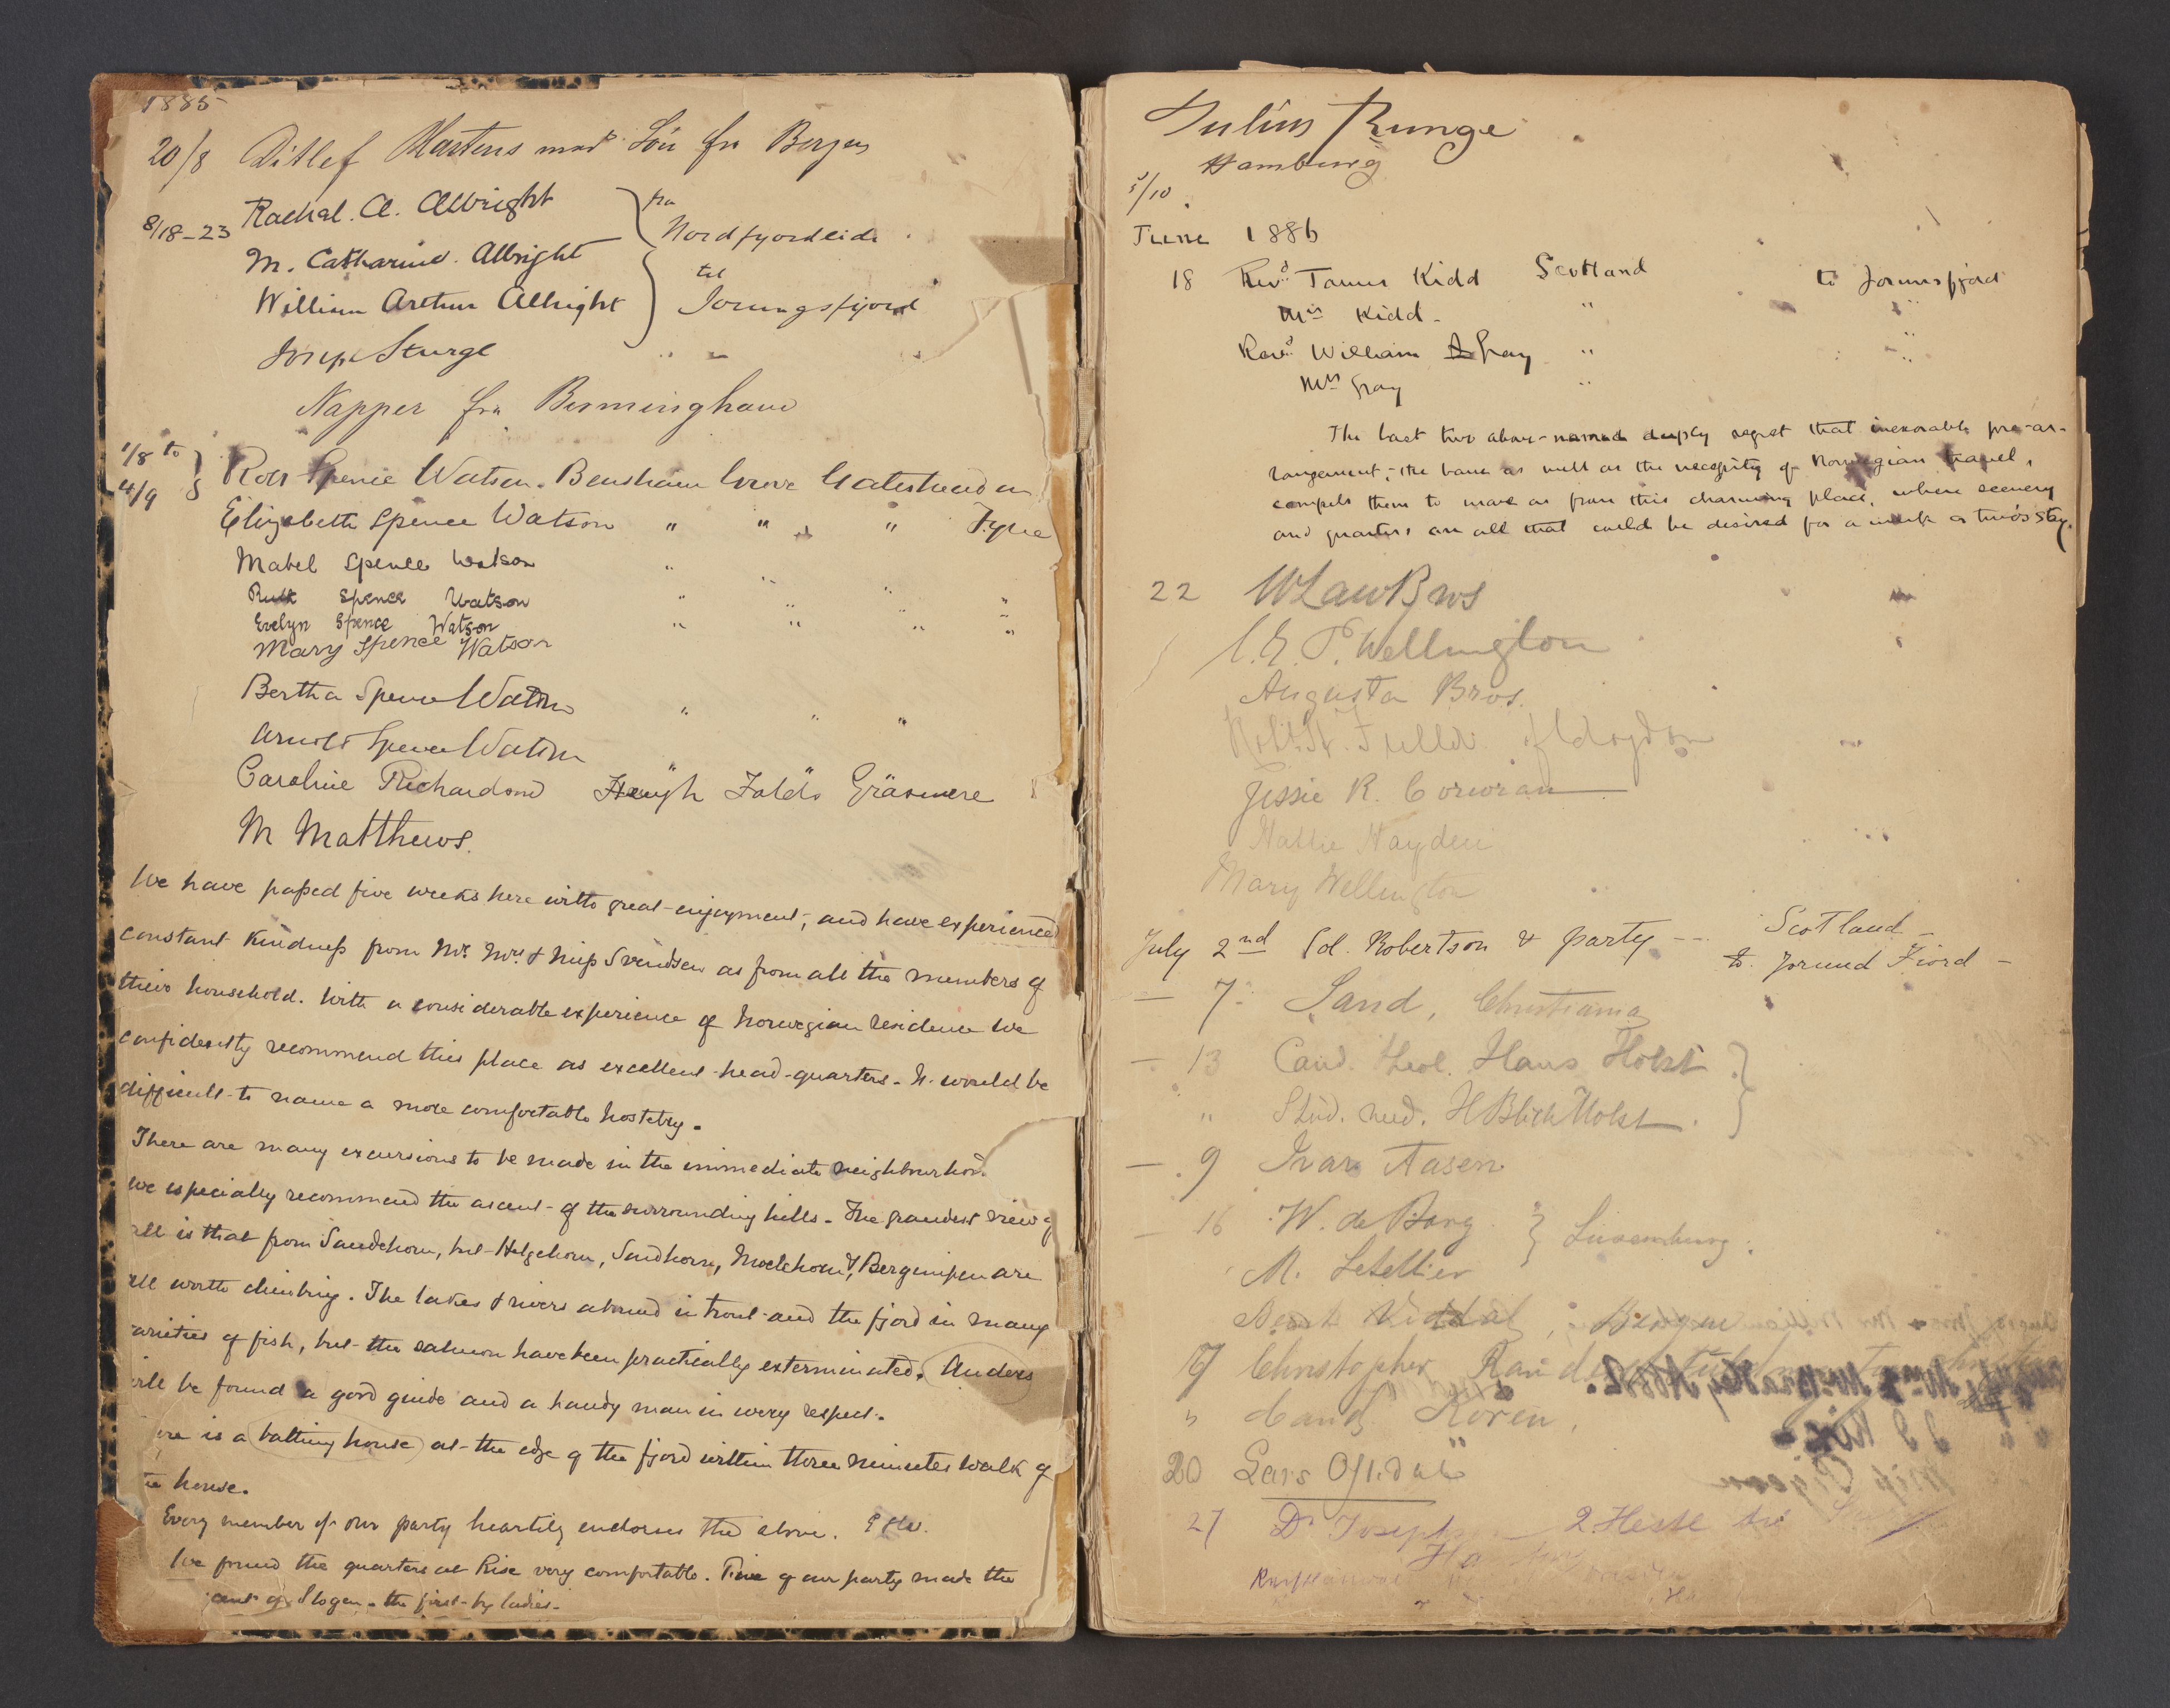 1885
20/8 Ditlef Martens med Sön fra Bergen
8/18-23 Rachel. A. Albright fra
M. Catharine. Albright Nordfjordeide
til
William Arthur Albright Jorungsfjord
Joseph Sturge " "
Napper fra Birmingham
1/8 to
4/9 Robt Spence Watson. Bensham Grove Gateshead on
Elizabeth Spence Watson " " " Tyne
Mabel Spence Watson " " " "
Ruth Spence Watson " " " "
Evelyn Spence Watson " " " "
Mary Spence Watson
Bertha Spence Watson " " "
Arnold Spence Watson " "
Caroline Richardson Heugh Folds Grasmere
M Matthews.
We have passed five weeks here with great enjoyment, and have experienced
constant kindness from Mr. Mrs. & Miss Svendsen as from all the members of
their household. With a considerable experience of Norwegian residence we
confidently recommend this place as excellent head-quarters. It would be
difficult to name a more comfortable hostelry.
There are many excursions to be made in the immediate neighbourhood.
We especially recommend the ascent of the surrounding hills. The grandest view of
all is that from Saudehorn, but Helgehorn, Sandhorn, Moelehorn & Bergenipen are
all worth climbing. The lakes & rivers abound in trout and the fjord in many
arieties of fish, but the salmon have been practically exterminated. Anders
ill be found a good guide and a handy man in every respect.
ere is a bathing house at the edge of the fjord within three minutes walk of
the house.
Every member of our party heartily endorses the above. ESW.
We found the quarters at Rise very comfortable. Five of our party made the
cent of Slogen - the first by ladies.
Julius Runge
Hamburg
5/10
June 1886
18 Revd. James Kidd Scotland to Jorunsfjord
Mrs Kidd. " "
Revd. William A Gray " "
Mrs Gray " "
The last two above-named deeply regret that inexorable pre-ar-
rangement, the bane as well as the necessity of Norwegian travel,
compels them to move on from this charming place, where scenery
and quarters are all that could be desired for a week or two's stay.
22 W Law Bros
C. E. P. Wellington
Augusta Bros.
Robt. W. Fuller of Croydon
Jessie R. Corcoran
Hattie Hayden
Mary Wellington
July 2nd Col. Robertson & party -- Scotland -
to Jorund Fiord -
— 7. Sand, Christiania
— 13 Cand. theol. Hans Holst
" Stud. med. H Blich Holst.
— . 9 Ivar Aasen
— 16 W. de Borg Luxemburg.
M. Letellier
Bergen
17 Christopher
" Cand. Koren.
20 Lars Oftedal
27 Dr Joseph 2 Heste til